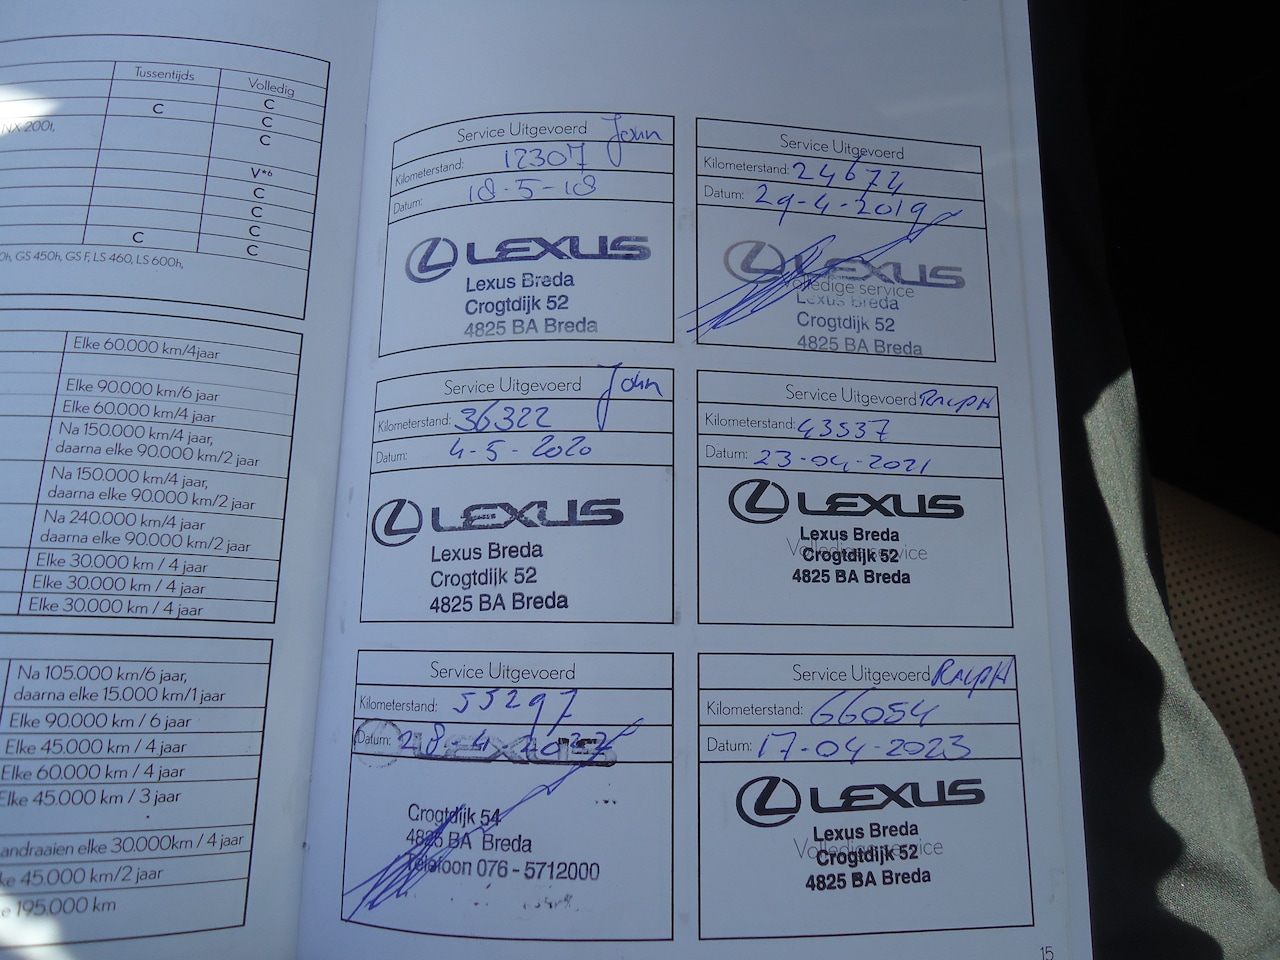 Tussentijds
Volledig
C
C
C
NX 200t,
C
V*6
C
C
C
C
C
0h, GS 450h, GS F, LS 460, LS 600h,
Elke 60.000 km/4jaar
Elke 90.000 km/6 jaar
Elke 60.000 km/4 jaar
Na 150.000 km/4 jaar,
daarna elke 90.000 km/2 jaar
Na 150.000 km/4 jaar,
daarna elke 90.000 km/2 jaar
Na 240.000 km/4 jaar
daarna elke 90.000 km/2 jaar
Elke 30.000 km / 4 jaar
Elke 30.000 km / 4 jaar
Elke 30.000 km / 4 jaar
Na 105.000 km/6 jaar,
daarna elke 15.000 km/1 jaar
Elke 90.000 km / 6 jaar
Elke 45.000 km / 4 jaar
Elke 60.000 km / 4 jaar
Elke 45.000 km / 3 jaar
andraaien elke 30.000km / 4 jaar
ke 45.000 km/2 jaar
e 195.000 km
Service Uitgevoerd John
Kilometerstand: 12307
Datum: 18-5-18
LEXUS
Lexus Breda
Crogtdijk 52
4825 BA Breda
Service Uitgevoerd
Kilometerstand: 24672
Datum: 29-4-2019
LEXUS
Volledige service
Lexus Breda
Crogtdijk 52
4825 BA Breda
Service Uitgevoerd John
Kilometerstand: 36322
Datum: 4-5-2020
LEXUS
Lexus Breda
Crogtdijk 52
4825 BA Breda
Service Uitgevoerd RALPH
Kilometerstand: 43537
Datum: 23-04-2021
LEXUS
Lexus Breda
Volledige service
Crogtdijk 52
4825 BA Breda
Service Uitgevoerd
Kilometerstand: 55297
Datum: 28-4-2022
LEXUS
Crogtdijk 54
4825 BA Breda
Telefoon 076 - 5712000
Service Uitgevoerd RALPH
Kilometerstand: 66054
Datum: 17-04-2023
LEXUS
Lexus Breda
Volledige service
Crogtdijk 52
4825 BA Breda
15